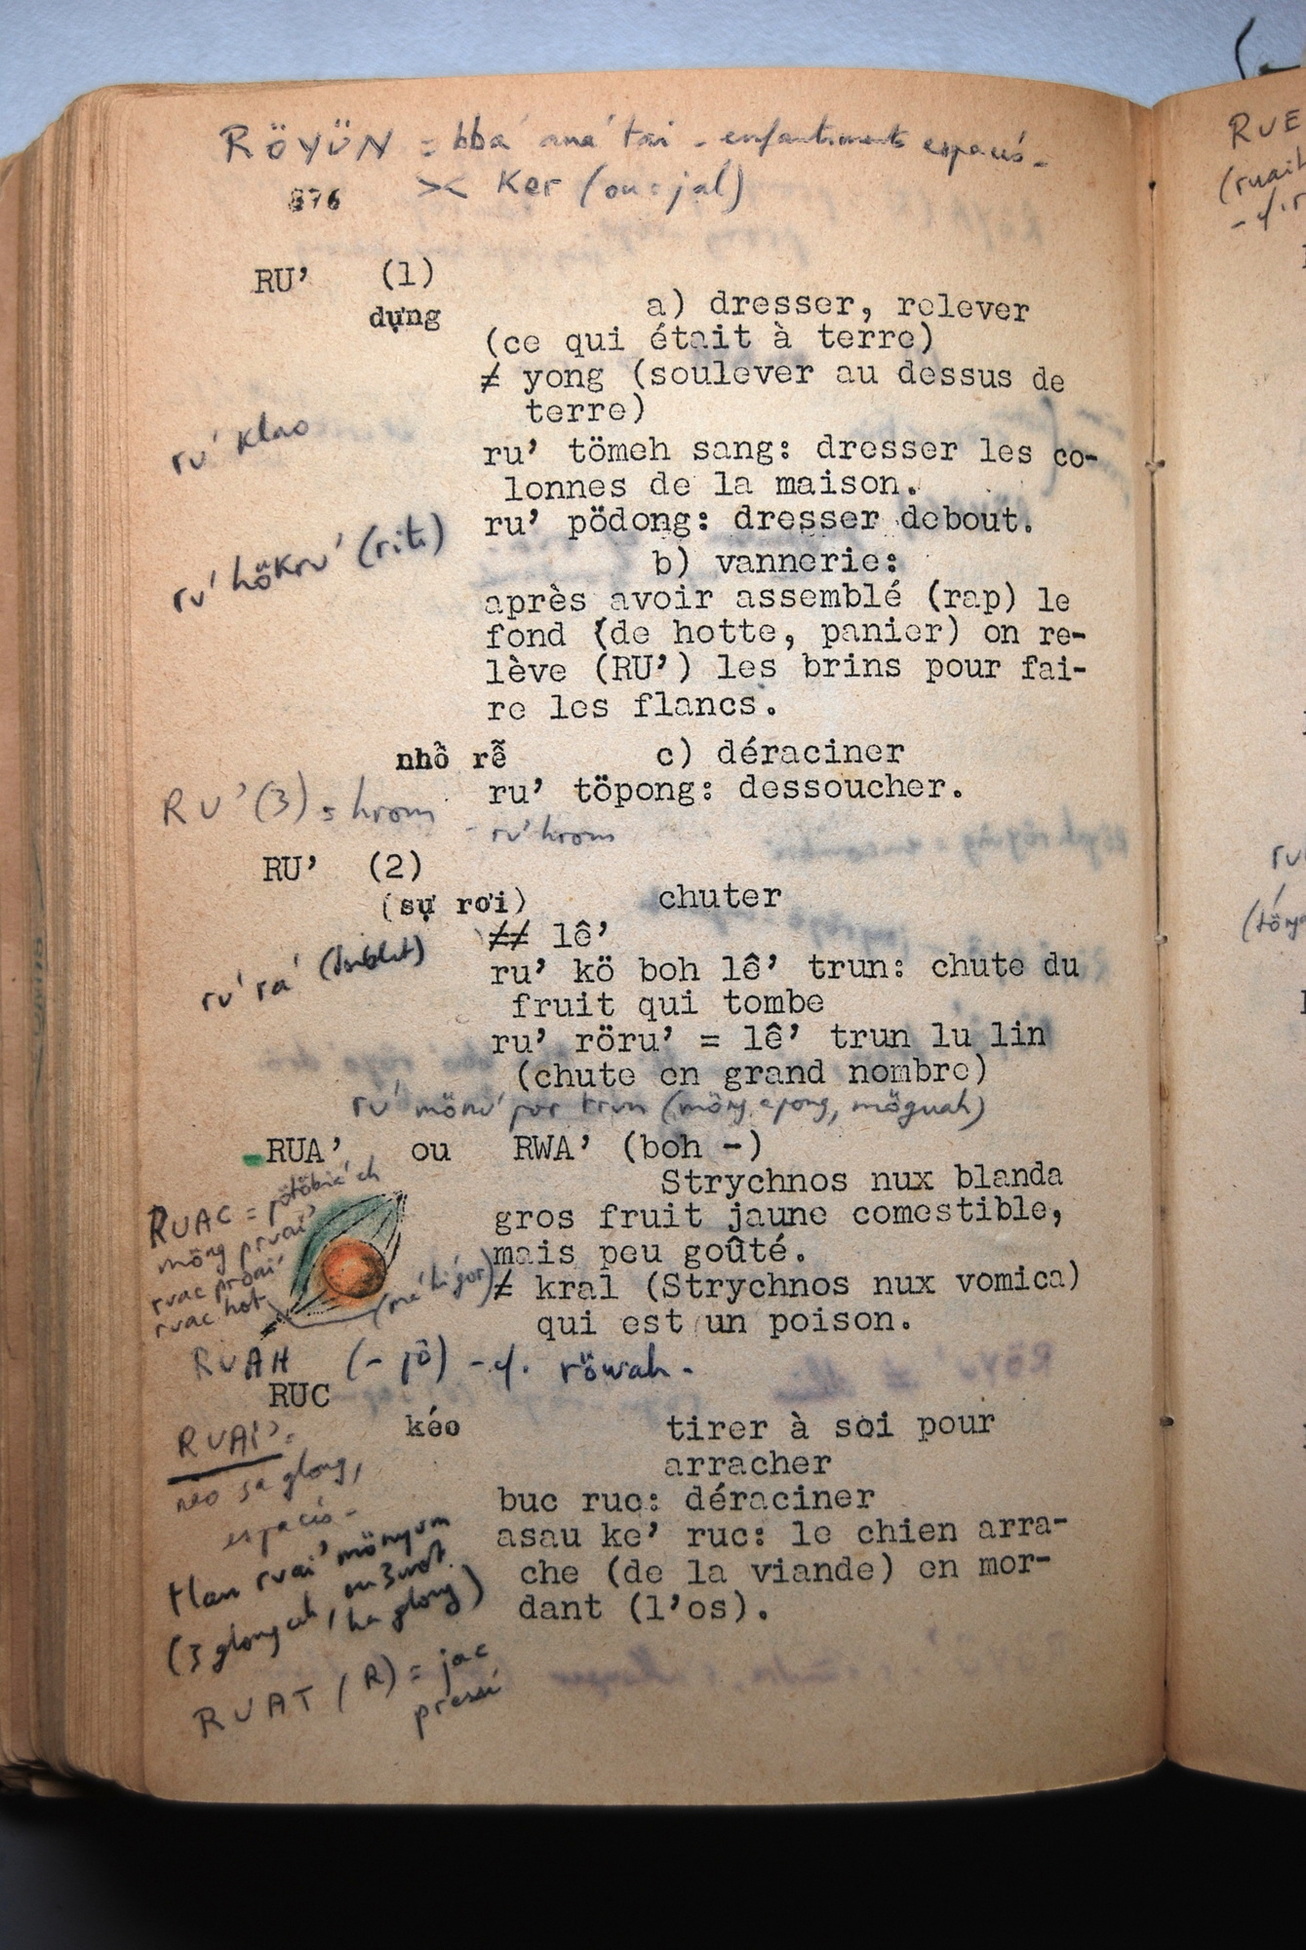 RÖYÜN = bba' ana' tai - enfantements espacés -
876 >< Ker (ou = jal)
RU’ (1)
dựng a) dresser, relever
(ce qui était à terre)
≠ yong (soulever au dessus de
terre)
ru' klao
ru’ tömeh sang: dresser les co-
lonnes de la maison.
ru’ pödong: dresser debout.
ru' hökru' (riti)
b) vannerie:
après avoir assemblé (rap) le
fond (de hotte, panier) on re-
lève (RU’) les brins pour fai-
re les flancs.
nhổ rễ c) déraciner
ru’ töpong: dessoucher.
RU' (3) = hrom - ru' hrom
RU’ (2)
(sự rơi) chuter
≠≠ lê’
ru' ra' (doublet)
ru’ kö boh lê’ trun: chute du
fruit qui tombe
ru’ röru’ = lê’ trun lu lin
(chute en grand nombre)
ru' mönu' por trun (möng apong, möguah)
RUA’ ou RWA’ (boh -)
Strychnos nux blanda
gros fruit jaune comestible,
mais peu goûté.
≠ kral (Strychnos nux vomica)
qui est un poison.
RUAC = pötöbia' ch
möng pruai'
ruac proai'
ruac hot
RUAH (- jö) - cf. röwah -
RUC
kéo tirer à soi pour
arracher
buc ruc: déraciner
asau ke’ ruc: le chien arra-
che (de la viande) en mor-
dant (l’os).
RUAI' =
neo sa glong,
espacés -
tlan ruai' mönyum
(3 glong
ha glong)
RUAT (R) = jac
pressé
RUE
(ruaih